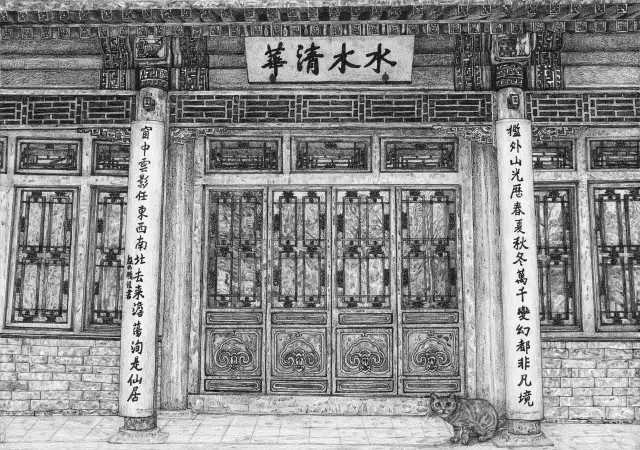 水木清華
檻外山光歷春夏秋冬萬千變幻都非凡境
窗中雲影任東西南北去來澹蕩洵是仙居